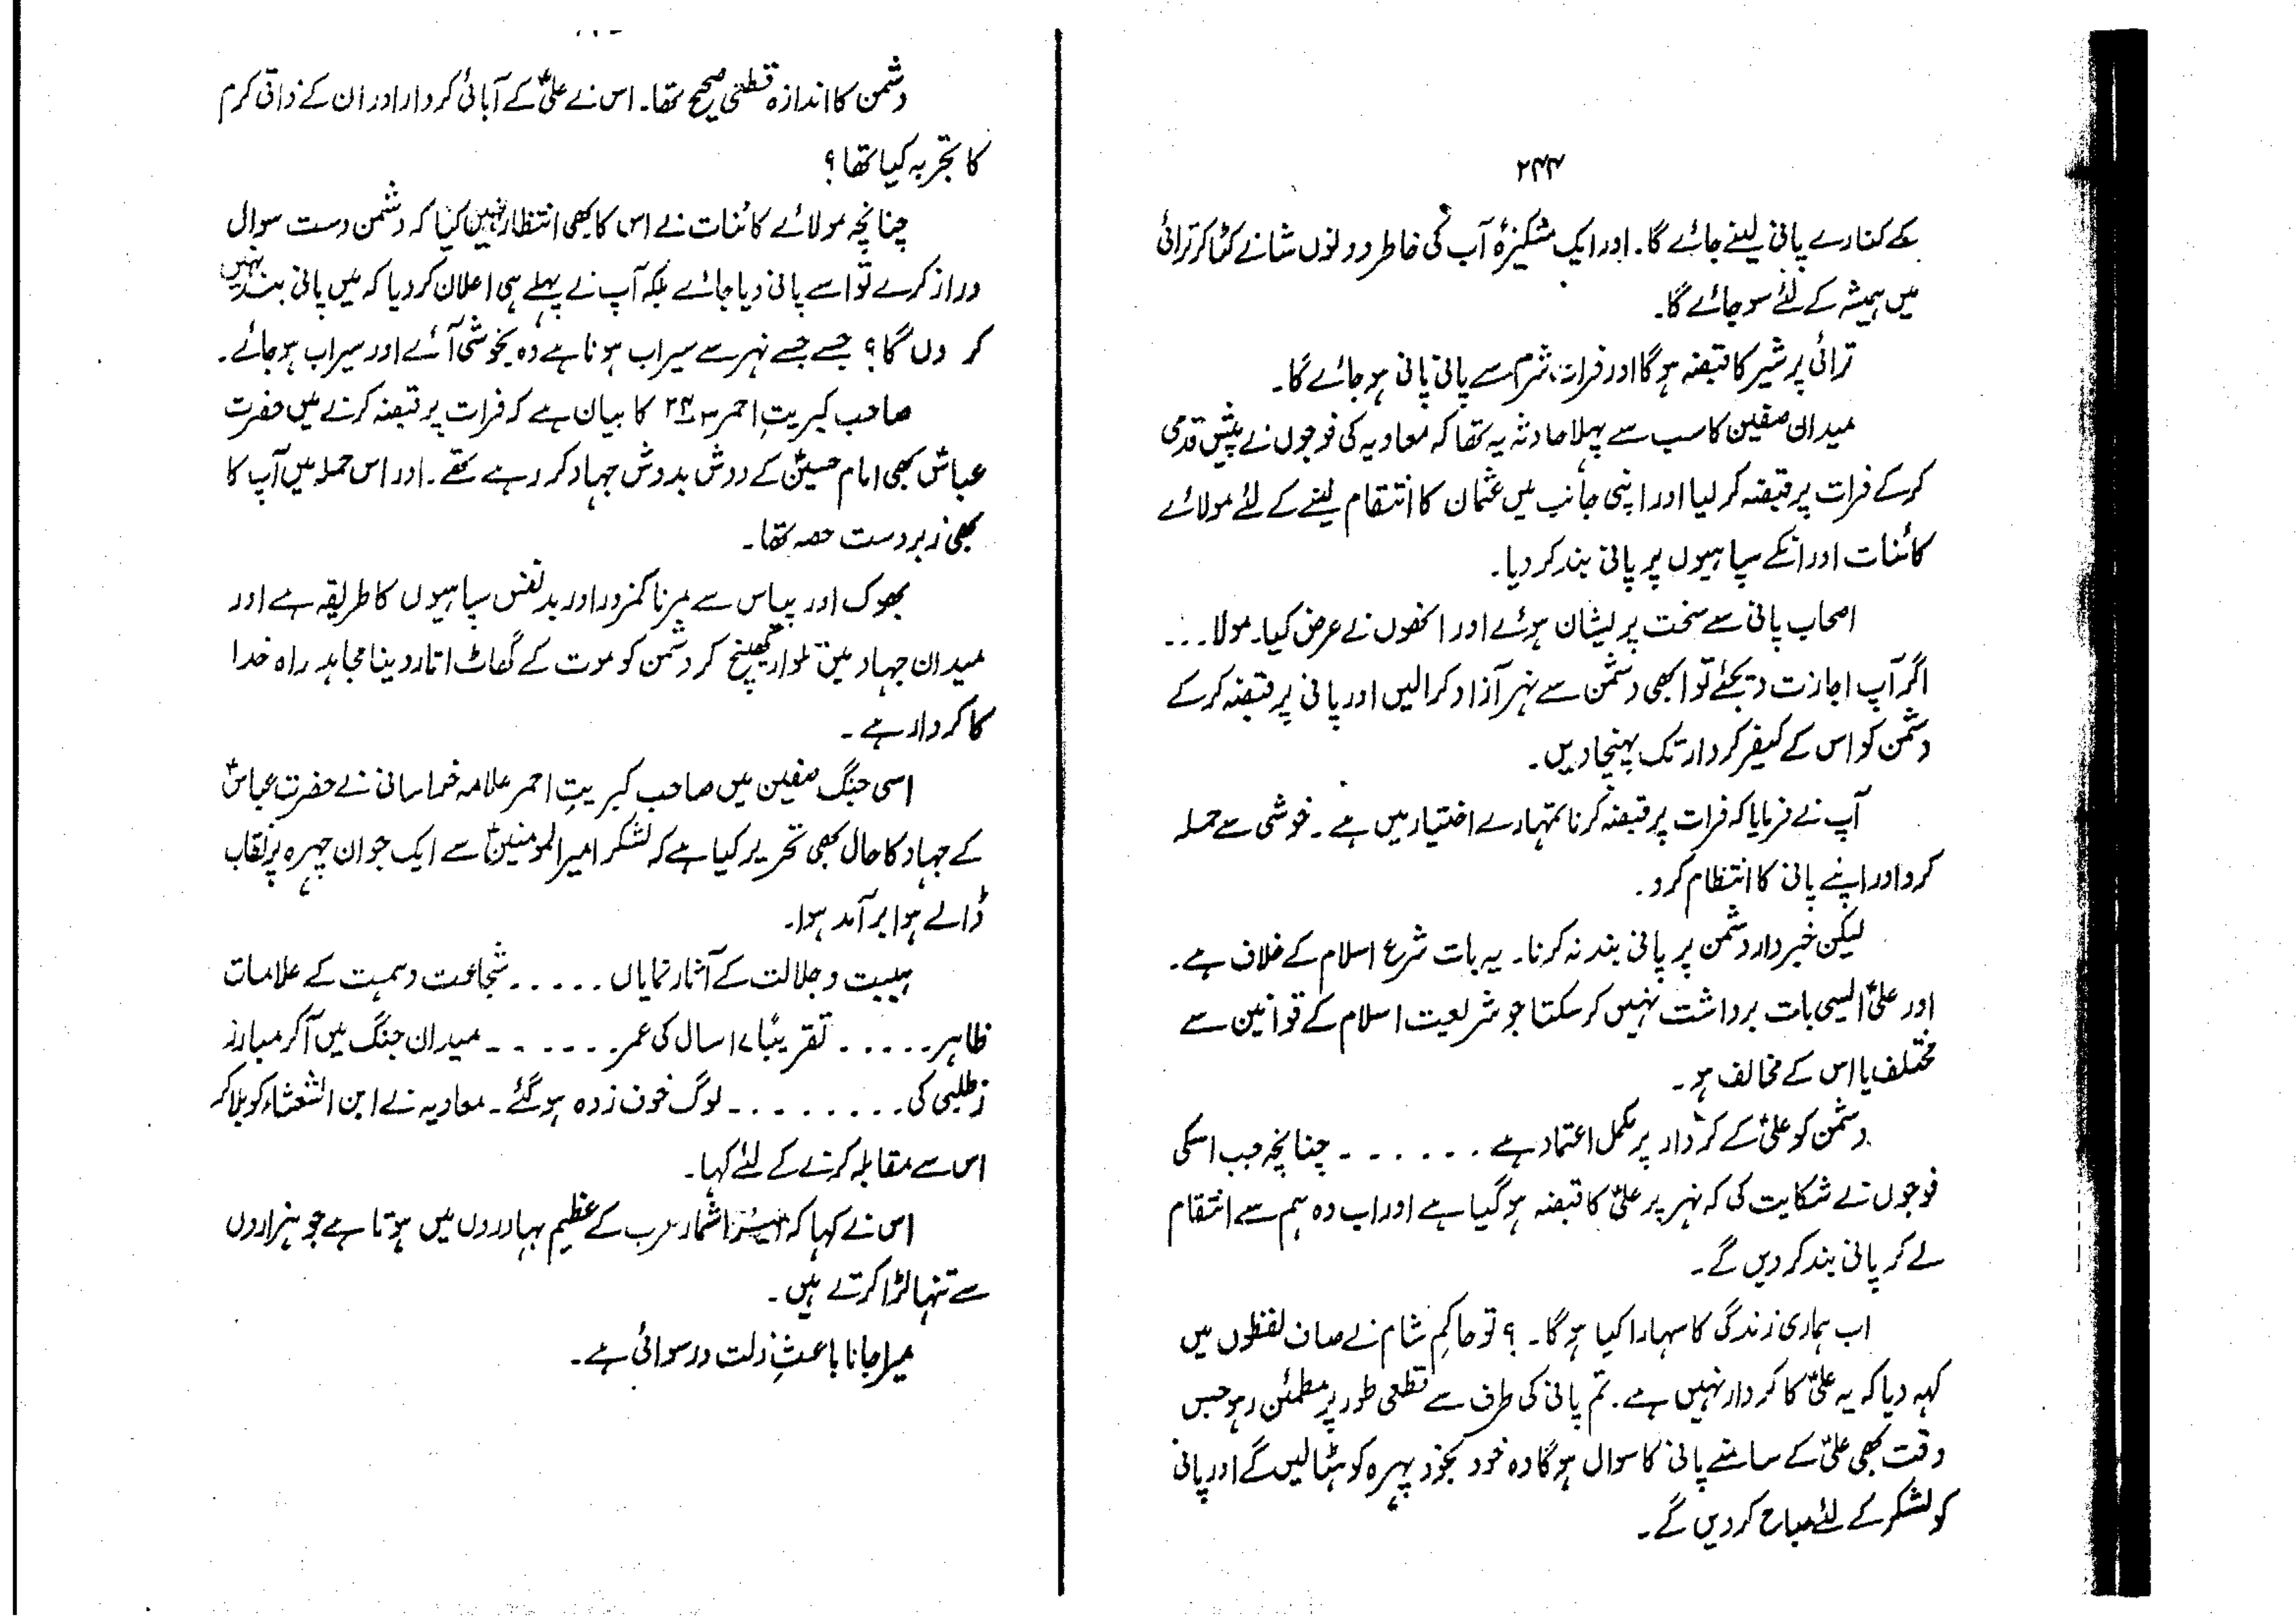 ۲۴۴
کے کنارے پانی لینے جائے گا۔ اور ایک مشکیزۂ آب کی خاطر دونوں شانے کٹا کر ترائی
میں ہمیشہ کے لئے سو جائے گا۔
ترائی پر شیر کا قبضہ ہوگا اور فرات، شرم سے پانی پانی ہو جائے گا۔
میدان صفین کا سب سے پہلا حادثہ یہ تھا کہ معاویہ کی فوجوں نے پیش قدمی
کر کے فرات پر قبضہ کر لیا اور اپنی جانب میں عثمان کا انتقام لینے کے لئے مولائے
کائنات اور انکے سپاہیوں پر پانی بند کر دیا۔
اصحاب پانی سے سخت پریشان ہوئے اور انھوں نے عرض کیا۔ مولا ...
اگر آپ اجازت دیجئے تو ابھی دشمن سے نہر آزاد کرالیں اور پانی پر قبضہ کر کے
دشمن کو اس کے کیفر کردار تک پہنچا دیں۔
آپ نے فرمایا کہ فرات پر قبضہ کرنا تمہارے اختیار میں ہے۔ خوشی سے حملہ
کرو اور اپنے پانی کا انتظام کرو۔
لیکن خبردار دشمن پر پانی بند نہ کرنا۔ یہ بات شرع اسلام کے خلاف ہے۔
اور علیؑ ایسی بات برداشت نہیں کر سکتا جو شریعت اسلام کے قوانین سے
مختلف یا اس کے مخالف ہو۔
دشمن کو علیؑ کے کردار پر مکمل اعتماد ہے ....... چنانچہ جب اسکی
فوجوں نے شکایت کی کہ نہر پر علیؑ کا قبضہ ہو گیا ہے اور اب وہ ہم سے انتقام
لے کر پانی بند کر دیں گے۔
اب ہماری زندگی کا سہارا کیا ہوگا۔ ؟ تو حاکمِ شام نے صاف لفظوں میں
کہہ دیا کہ یہ علیؑ کا کردار نہیں ہے۔ تم پانی کی طرف سے قطعی طور پر مطمئن رہو جس
وقت بھی علیؑ کے سامنے پانی کا سوال ہوگا وہ خود بخود پہرہ کو ہٹا لیں گے اور پانی
کو لشکر کے لئے مباح کر دیں گے۔
دشمن کا اندازہ قطعی صحیح تھا۔ اس نے علیؑ کے آبائی کردار اور ان کے ذاتی کرم
کا تجربہ کیا تھا ؟
چنانچہ مولائے کائنات نے اس کا بھی انتظار نہیں کیا کہ دشمن دست سوال
دراز کرے تو اسے پانی دیا جائے بلکہ آپ نے پہلے ہی اعلان کر دیا کہ میں پانی بند نہیں
کر دوں گا ؟ جسے جسے نہر سے سیراب ہونا ہے وہ بخوشی آئے اور سیراب ہو جائے۔
صاحب کبریتِ احمر ۲۴۳ کا بیان ہے کہ فرات پر قبضہ کرنے میں حضرت
عباسؑ بھی امام حسینؑ کے دوش بدوش جہاد کر رہے تھے۔ اور اس حملہ میں آپ کا
بھی زبردست حصہ تھا۔
بھوک اور پیاس سے مرنا کمزور اور بدنفس سپاہیوں کا طریقہ ہے اور
میدان جہاد میں تلوار کھینچ کر دشمن کو موت کے گھاٹ اتار دینا مجاہد راہ خدا
کا کردار ہے۔
اسی جنگ صفین میں صاحب کبریتِ احمر علامہ خراسانی نے حضرت عباسؑ
کے جہاد کا حال بھی تحریر کیا ہے کہ لشکر امیر المومنینؑ سے ایک جوان چہرہ پر نقاب
ڈالے ہوا برآمد ہوا۔
ہیبت و جلالت کے آثار نمایاں ..... شجاعت و ہمت کے علامات
ظاہر ..... تقریباً ۱۷ سال کی عمر ...... میدان جنگ میں آکر مبارز
طلبی کی ........ لوگ خوف زدہ ہو گئے۔ معاویہ نے ابن الشعثاء کو بلا کر
اس سے مقابلہ کرنے کے لئے کہا۔
اس نے کہا کہ میرا شمار عرب کے عظیم بہادروں میں ہوتا ہے جو ہزاروں
سے تنہا لڑا کرتے ہیں۔
میرا جانا باعثِ ذلت و رسوائی ہے۔